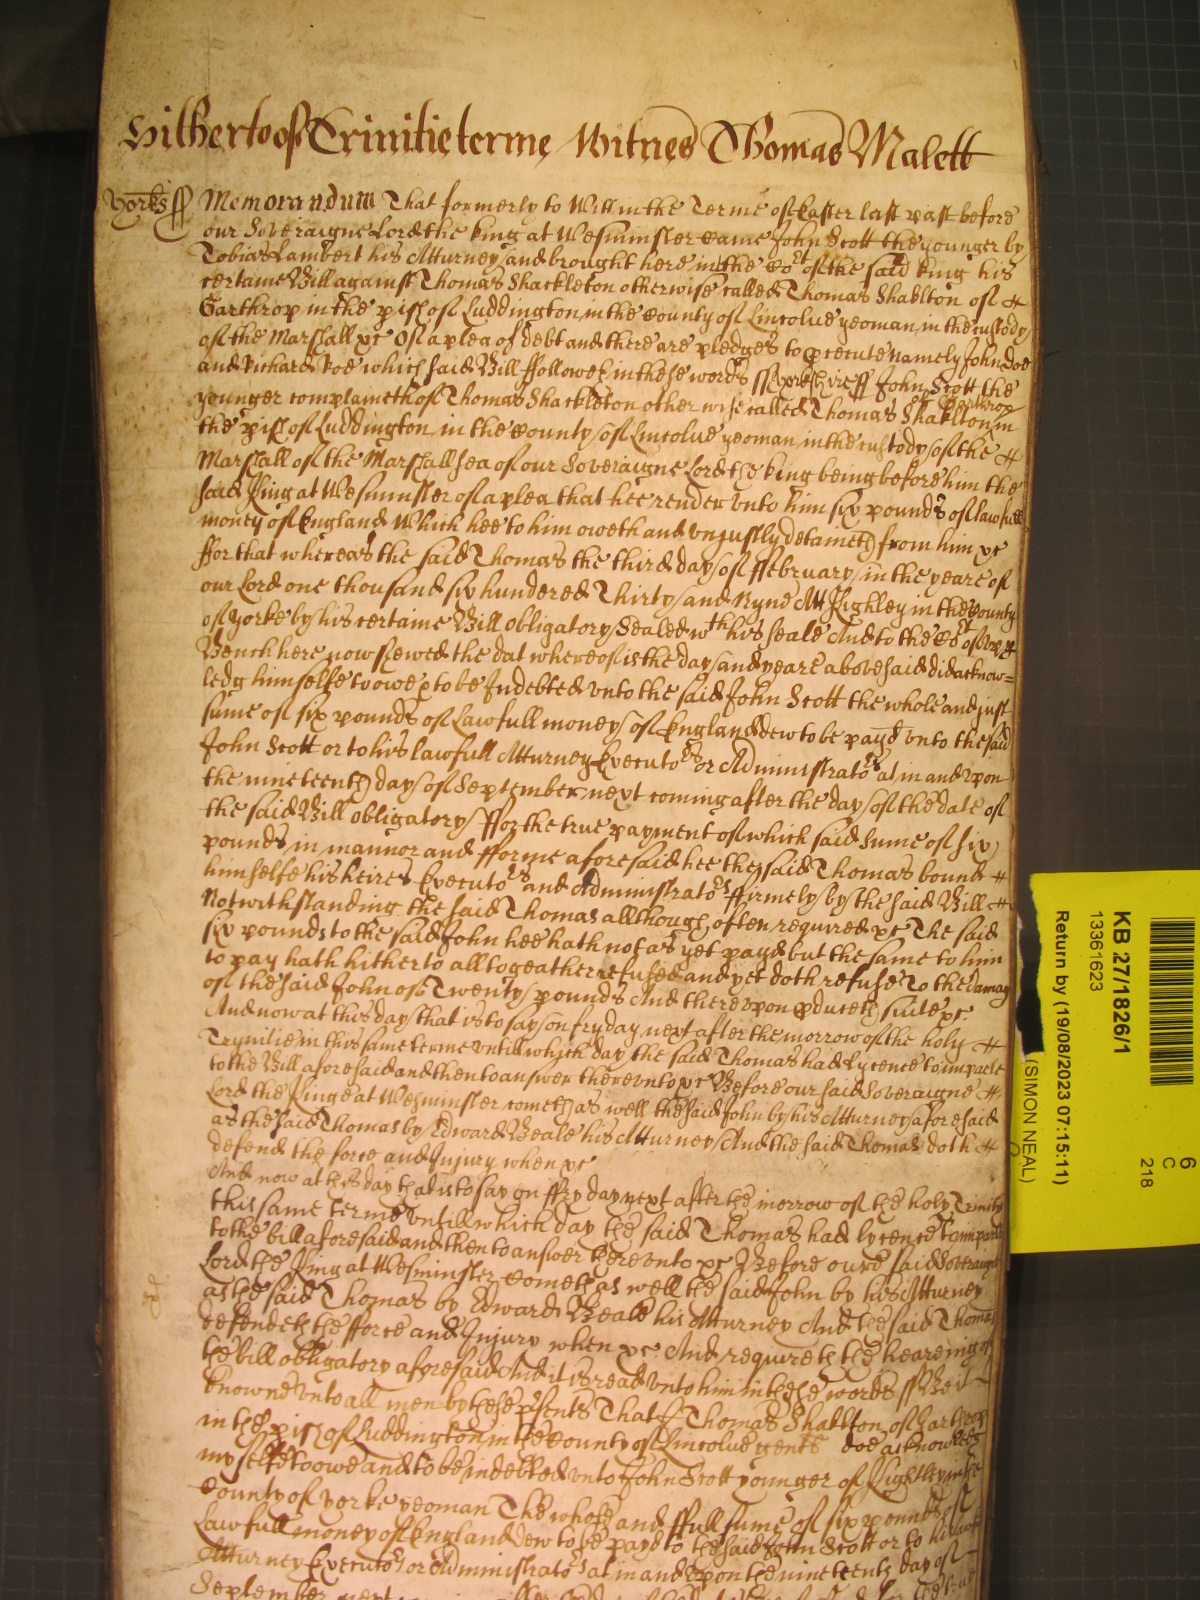 Hitherto of Trinitie terme Witnes Thomas Malett
Yorks ss Memorandum That formerly to Will in the Terme of Easter last past before
our Soveraigne Lord the King at Wesminster came John Scott the younger by
Tobias Lambert his Atturney and brought here in the Cort of the said King his
certaine Bill against Thomas Shackleton otherwise called Thomas Shaklton of
Garthrop in the pish of Luddington in the County of Lincolne yeoman, in the custody
of the Marshall &c Of a plea of debt and there are pledges to psecute namely John Doe
and Richard Roe which said Bill ffolloweth in these words ss Yorksheire ss John Scott the
younger complaineth of Thomas Shackleton otherwise called Thomas Shaklton of Garthrop in
the pish of Luddington in the County of Lincolne yeoman, in the custody of the
Marshall of the Marshallsea of our Soveraigne Lord the King being before him the
said King at Wesminster of a plea that hee render unto him six pounds of lawfull
money of England Which hee to him oweth and unjustly detaineth from him &c
ffor that whereas the said Thomas the third day of ffebruary in the yeare of
our Lord one thousand six hundered Thirty and Nyne Att Kighley in the County
of Yorke by his certaine Bill obligatory Sealed wth his seale And to the Cort of
Bench here now shewed the dat whereof is the day and yeare abovesaid did acknow=
ledg himselfe to owe & to be Indebted unto the said John Scott the whole and just
sume of six pounds of Lawfull money of England dew to be payd unto the said
John Scott or to his lawfull Atturney Executors or Administrators at in and upon
the nineteenth day of September next coming after the day of the date of
the said Bill obligatory ffor the true payment of which said sume of six
pounds in mannor and fforme aforesaid hee the said Thomas bound
himselfe his heires Executors and Administrators ffirmely by the said Bill
Notwithstanding the said Thomas allthough often required &c The said
six pounds to the said John hee hath not as yet payd but the same to him
to pay hath hitherto alltogeather refused and yet doth refuse To the damag
of the said John of Twenty pounds And thereupon pduceth suite &c
And now at this day that is to say on fryday next after the morrow of the holy
Trynitie in this same terme untill which day the said Thomas had Lycence to imparle
to the Bill aforesaid and then to answer thereunto &c Before our said Soveraigne
Lord the King at Wesminster cometh as well the said John by his Atturney aforesaid
as the said Thomas by Edward Beale his Atturney And the said Thomas doth
defend the force and Injury when &c
And now at this day that is to say on ffryday next after the morrow of the holy Trinity
this same terme untill which day the said Thomas had lycence to imparle
to the bill aforesaid and then to answer thereunto &c Before oure said Soveraigne
Lord the King at Wesminster cometh as well the said John by his Atturney
as the said Thomas by Edward Beale his Atturney And the said Thomas
defendeth the fforce and Injury when &c And requireth the heareing of
the bill obligatory aforesaid And it is read unto him in these words ss Bee it
knowne unto all men by these psents That I Thomas Shaklton of Garthrop
in the pish of Luddington in the County of Lincolne gent doe acknowledg
my selfe to owe and to be indebted unto John Scott younger of Kightley in the
County of yorke yeoman The whole and ffull sume of six pounds of
Lawfull money of England dew to be payd to the said John Scott or to his lawfull
Atturney Executors or Administrators at in and upon the nineteenth day of
September next
KB 27/1826/1
13361623
Return by (19/08/2023 07:15:11)
(SIMON NEAL)
6
C
218